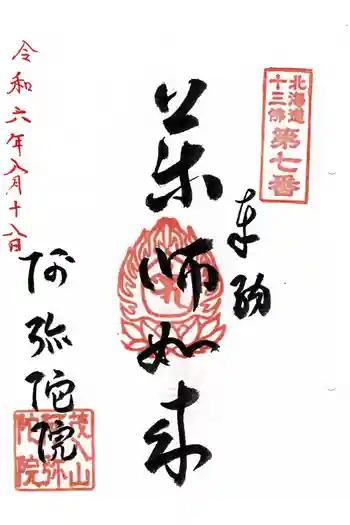 北海道
十三佛
第七番
奉納
薬師如来
阿弥陀院
茂入山
阿弥
陀院
令和六年八月十八日